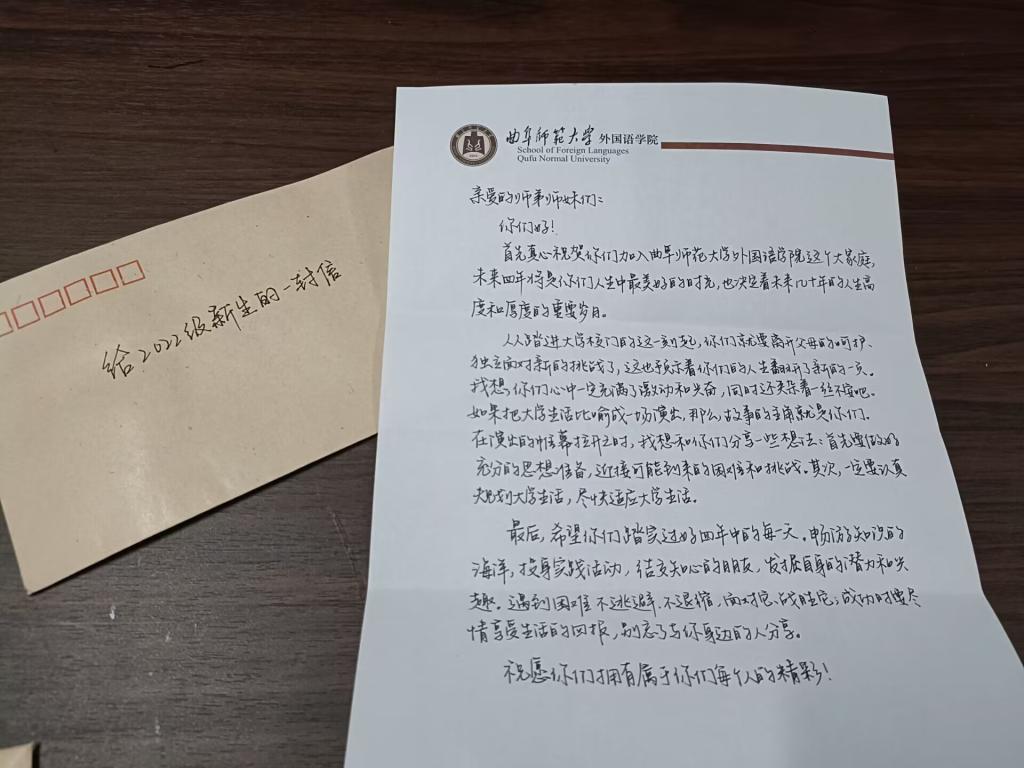 给2022级新生的一封信
曲阜师范大学 外国语学院
School of Foreign Languages
Qufu Normal University
亲爱的师弟师妹们：
你们好！
首先真心祝贺你们加入曲阜师范大学外国语学院这个大家庭，
未来四年将是你们人生中最美好的时光，也决定着未来几十年的人生高
度和厚度的重要岁月。
从踏进大学校门的这一刻起，你们就要离开父母的呵护、
独立面对新的挑战了，这也预示着你们的人生翻开了新的一页。
我想，你们心中一定充满了激动和兴奋，同时还夹杂着一丝不安吧。
如果把大学生活比喻成一场演出，那么，故事的主角就是你们。
在演出的帷幕拉开之时，我想和你们分享一些想法：首先要做好
充分的思想准备，迎接可能到来的困难和挑战。其次，一定要认真
规划大学生活，尽快适应大学生活。
最后，希望你们踏实过好四年中的每一天。畅游知识的
海洋，投身实践活动，结交知心的朋友，发掘自身的潜力和兴
趣。遇到困难不逃避、不退缩，面对它，战胜它；成功时要尽
情享受生活的回报，别忘了与你身边的人分享。
祝愿你们拥有属于你们每个人的精彩！